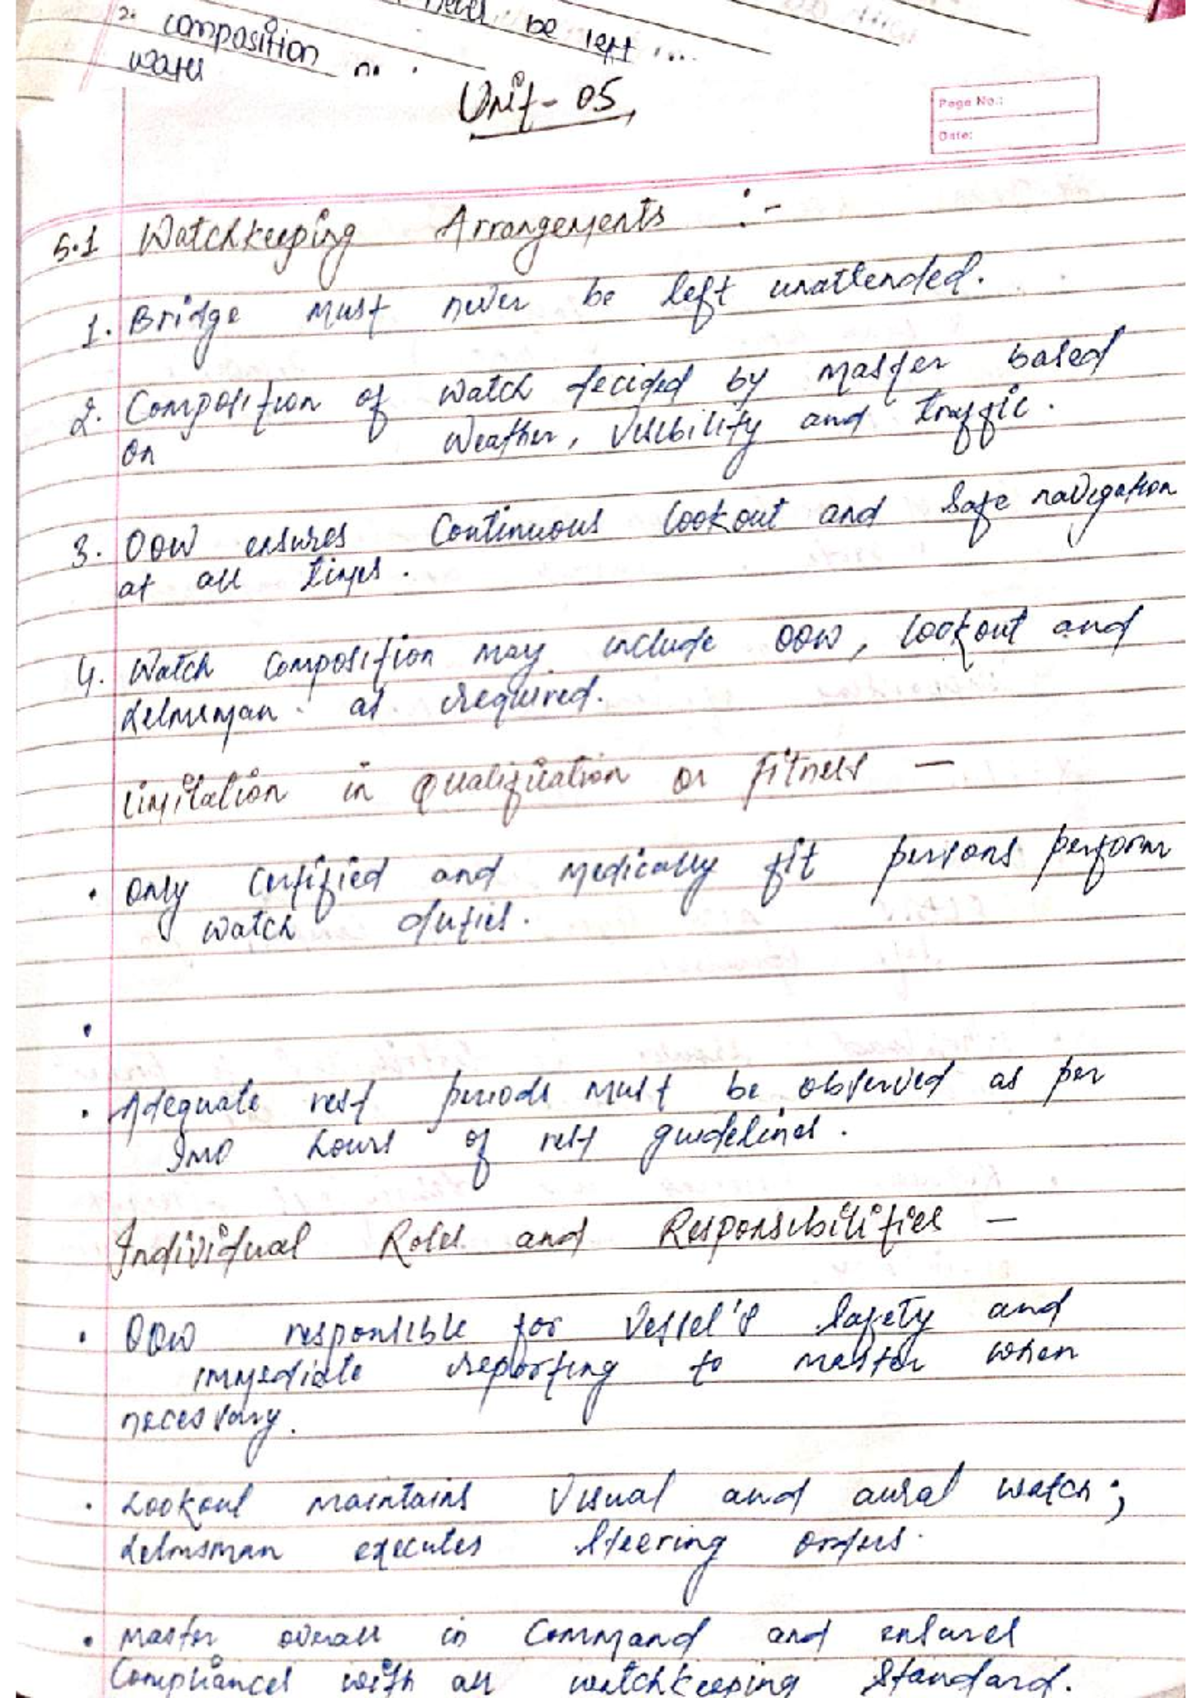 never be left ...
2. composition
watch
Unit - 05,
Page No.:
Date:
5.1 Watchkeeping Arrangements :-
1. Bridge must never be left unattended.
2. Composition of watch decided by master based
on weather, visibility and traffic.
3. OOW ensures continuous lookout and safe navigation
at all times.
4. Watch composition may include OOW, lookout and
helmsman as required.
limitation in qualification or fitness —
• Only certified and medically fit persons perform
watch duties.
•
• Adequate rest periods must be observed as per
IMO hours of rest guidelines.
Individual Roles and Responsibilities —
• OOW responsible for vessel's safety and
immediate reporting to master when
necessary.
• Lookout maintains visual and aural watch;
helmsman executes steering orders.
• Master overall in command and ensures
compliances with all watchkeeping standard.